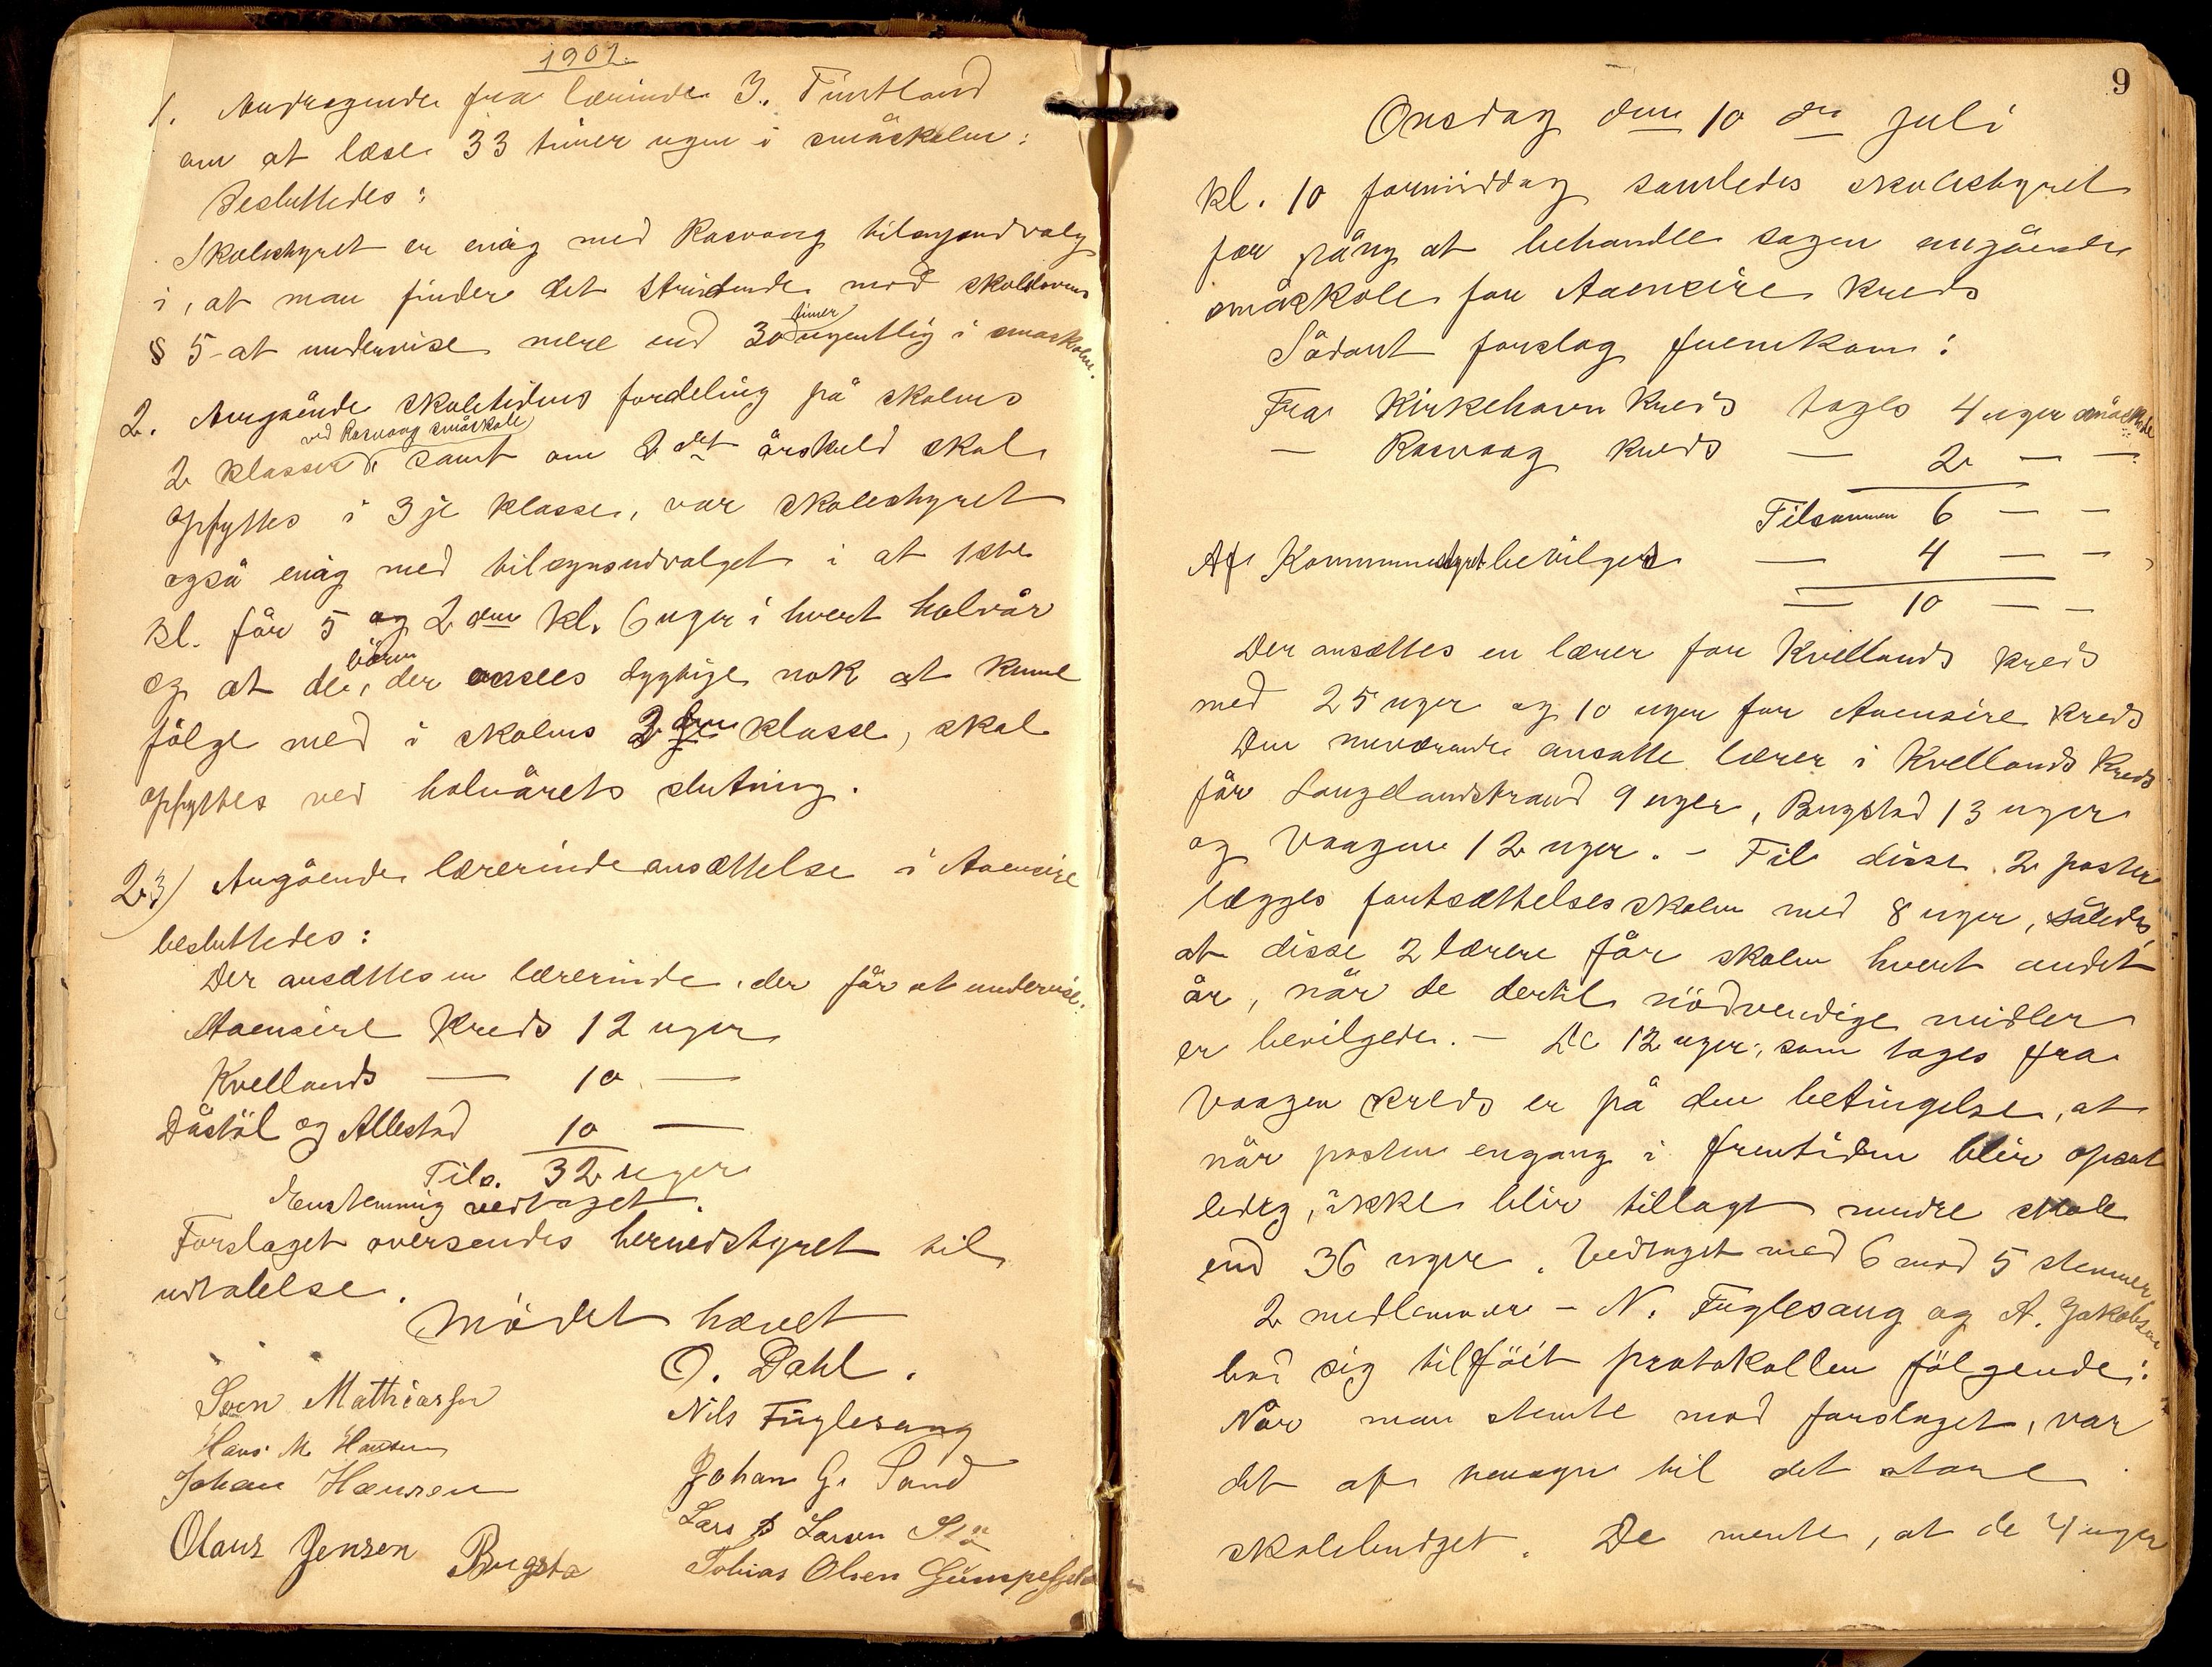 1901.
1. Andragende fra lærerinde J. Tuntland
om at læse 33 timer ugen i småskolen:
Besluttedes:
Skolestyret er enig med Rasvaag tilsynsudvalg
i, at man finder det stridende mod skolelovens
§ 5 at undervise mere end 30 timer ugentlig i småskolen.
2. Angående skoletidens fordeling på skolens
2 klasser ved Rasvaag småskole, samt om 2det årskuld skal
opflyttes i 3je klasse, var skolestyret
også enig med tilsynsudvalget i at 1ste
kl. får 5 og 2den kl. 6 uger i hvert halvår
og at de børn, der ansees dygtige nok at kunne
følge med i skolens 2den klasse, skal
opflyttes ved halvårets slutning.
3) Angående lærerindeansættelse i Aaensire
besluttedes:
Der ansættes en lærerinde, der får at undervise:
Aaensire Kreds 12 uger
Kvellands — 10 —
Dåstöl og Allestad 10 —
Tils. 32 uger
Enstemmig vedtaget.
Forslaget oversendes herredstyret til
udtalelse.
Mödet hævet
O. Dahl.
Sven Mathiassen
Nils Fuglesang
Hans M. Hansen
Johan Hansen
Johan G. Sand
Lars Larsen
Olaus Jensen Bugsta
Tobias Olsen Gumpefjeld
9
Onsdag den 10de juli
kl. 10 formiddag samledes skolestyret
for påny at behandle sagen angående
småskole for Aaensire kreds
Sådant forslag fremkom:
Fra Kirkehavn Kreds tages 4 uger småskole
— Rasvaag kreds — 2 — —
Tilsammen 6 — —
Af Kommunestyret bevilges — 4 — —
— 10 — —
Der ansættes en lærer for Kvellands kreds
med 25 uger og 10 uger for Aaensire kreds
Den nuværende ansatte lærer i Kvellands Kreds
får Langelandstrand 9 uger, Bugstad 13 uger
og Vaagen 12 uger. – Til disse 2 poster
lægges fortsættelsesskolen med 8 uger, således
at disse 2 lærere får skolen hvert andet
år, når de dertil nödvendige midler
er bevilgede. – De 12 uger, som tages fra
Vaagen kreds er på den betingelse, at
når posten engang i fremtiden blir opsat
ledig, ikke blir tillagt mindre skole
end 36 uger. Vedtaget med 6 mod 5 stemmer
2 medlemmer – N. Fuglesang og A. Jakobsen
bad sig tilföit protokollen fölgende:
Når man stemte mod forslaget, var
det af hensyn til det store
skolebudget. De mente, at de 4 uger